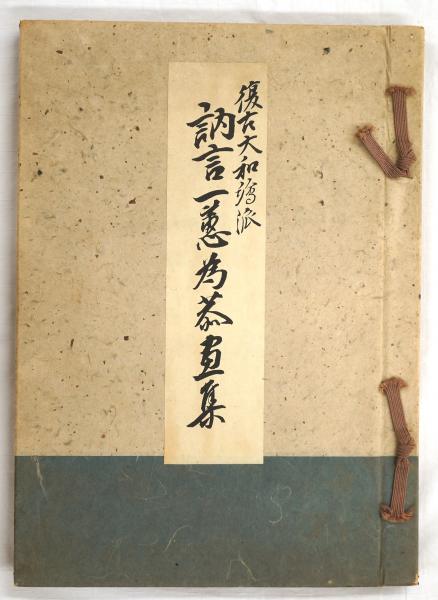 復古大和絵派
訥言一蕙為恭畫集